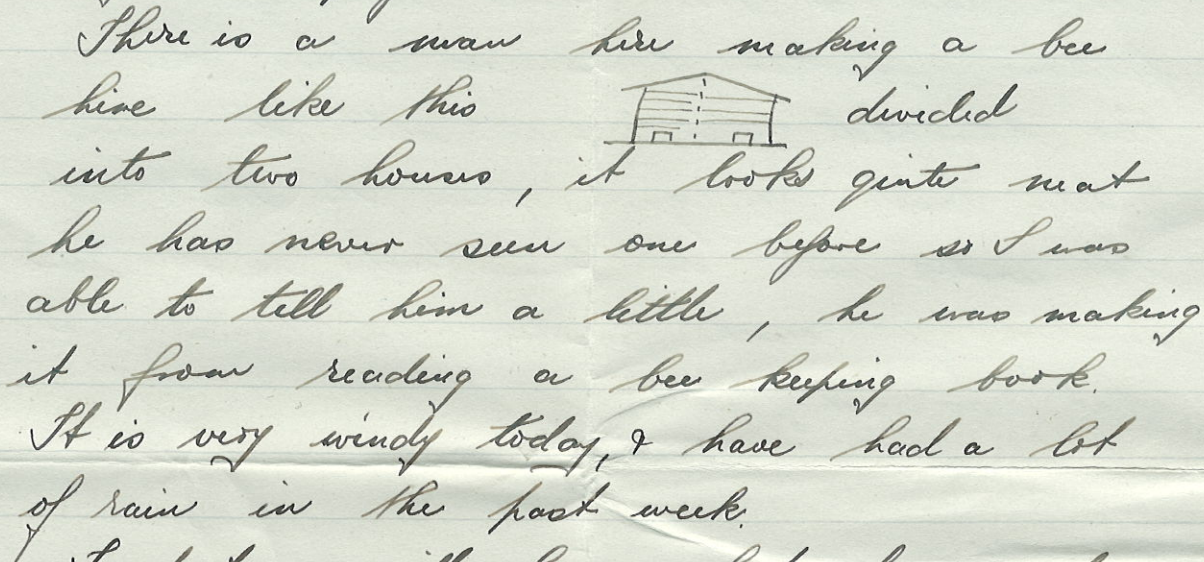 There is a man here making a bee
hive like this divided
into two houses, it looks quite neat
he has never seen one before so I was
able to tell him a little, he was making
it from reading a bee keeping book.
It is very windy today, & have had a lot
of rain in the past week.